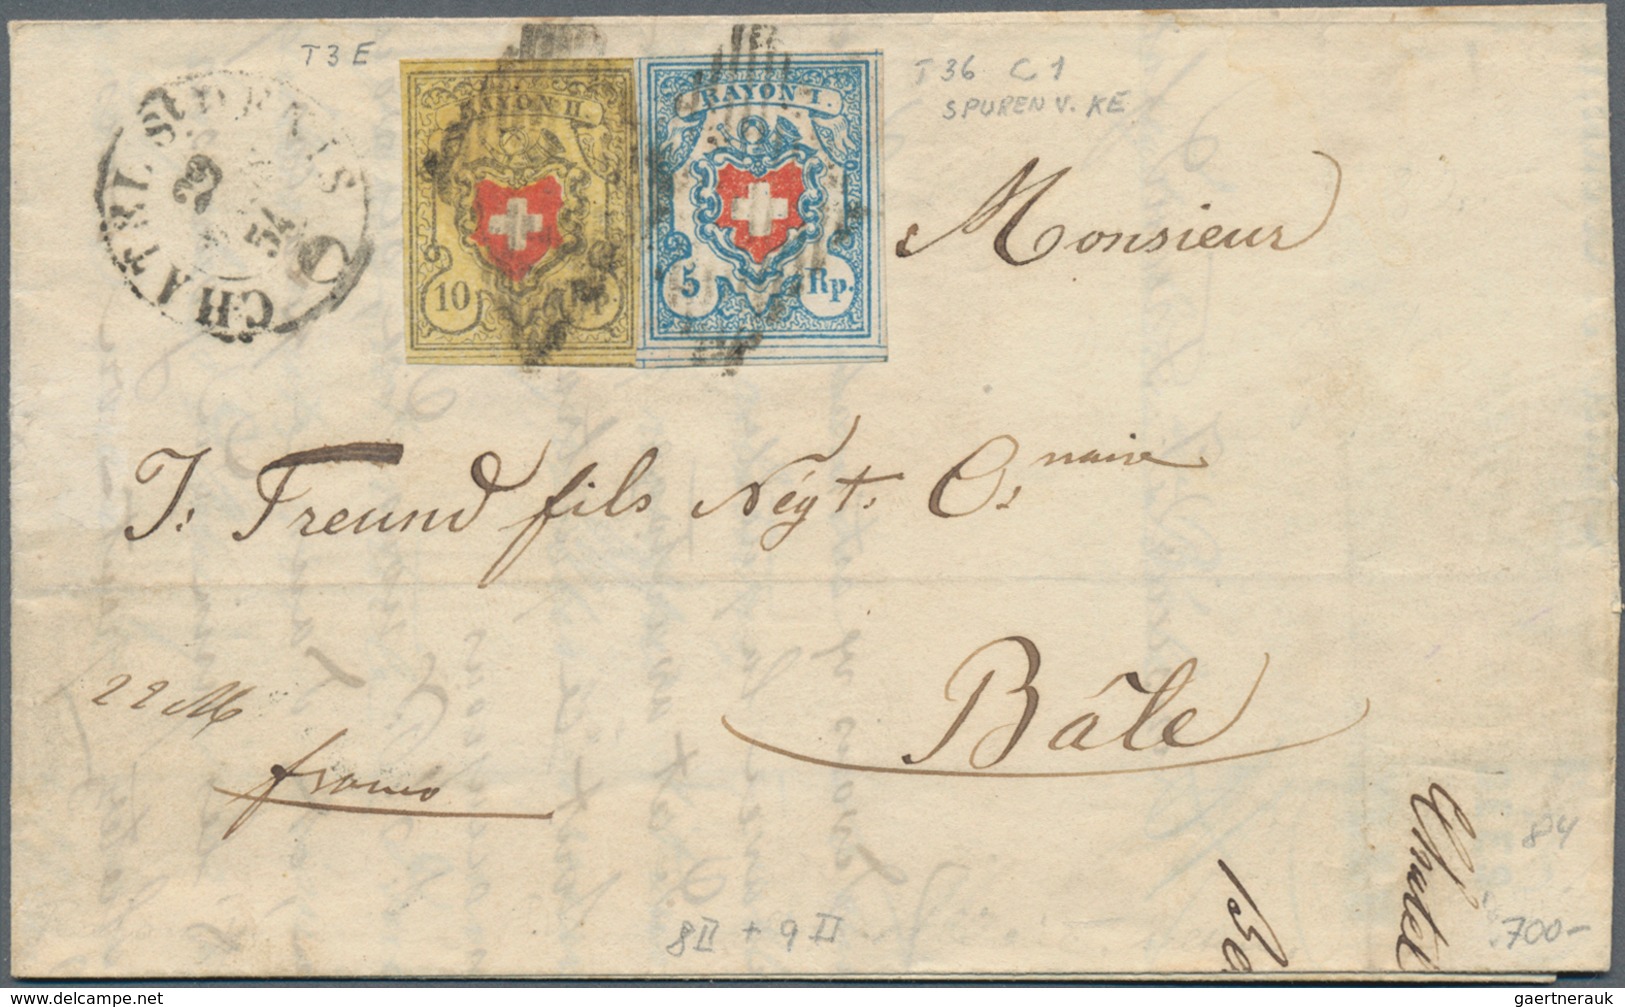 T3E
CHATEL ST DENIS
23
54
RAYON II.
10 Rp.
RAYON I.
5 Rp.
T36 C1
SPUREN V. KE
Monsieur
J: Freund fils Négt: C:naire
Bâle
22 M
franco
Chatel
8II + 9II
84
700-
www.delcampe.net
gaertnerauk